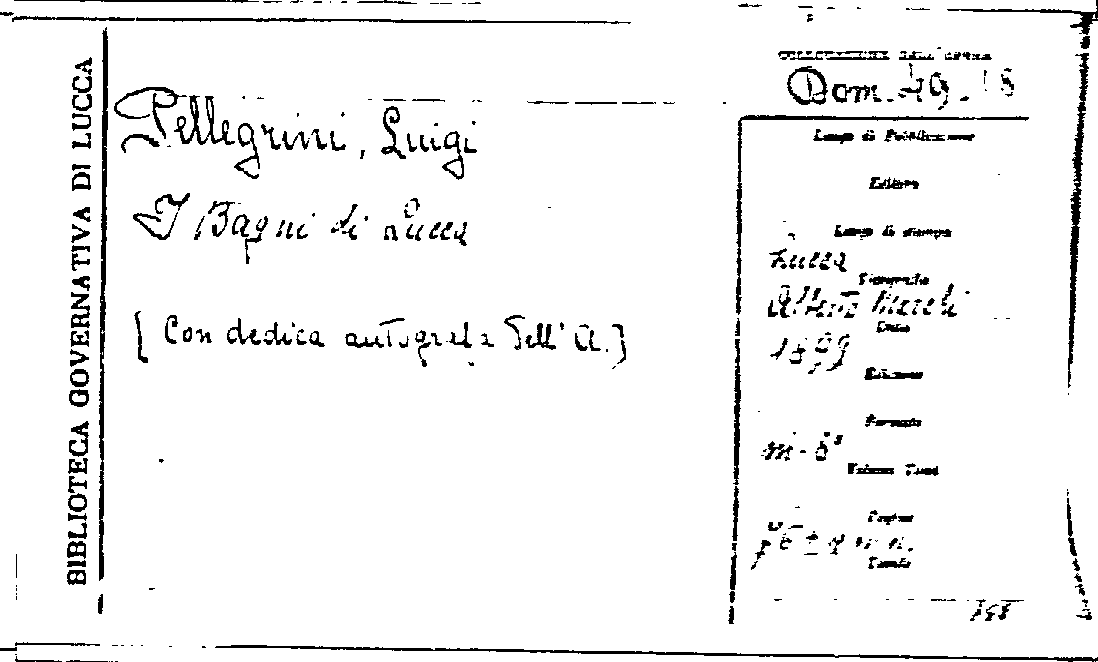 BIBLIOTECA GOVERNATIVA DI LUCCA
COLLOCAZIONE DELL'OPERA
Dom. 49. 18
Pellegrini, Luigi
I Bagni di Lucca
[Con dedica autografa dell'A.]
Luogo di Pubblicazione
Editore
Luogo di stampa
Lucca
Tipografia
Alberto Marchi
Data
1899
Edizione
Formato
in-8°
Volume Tomi
Pagine
Tavole